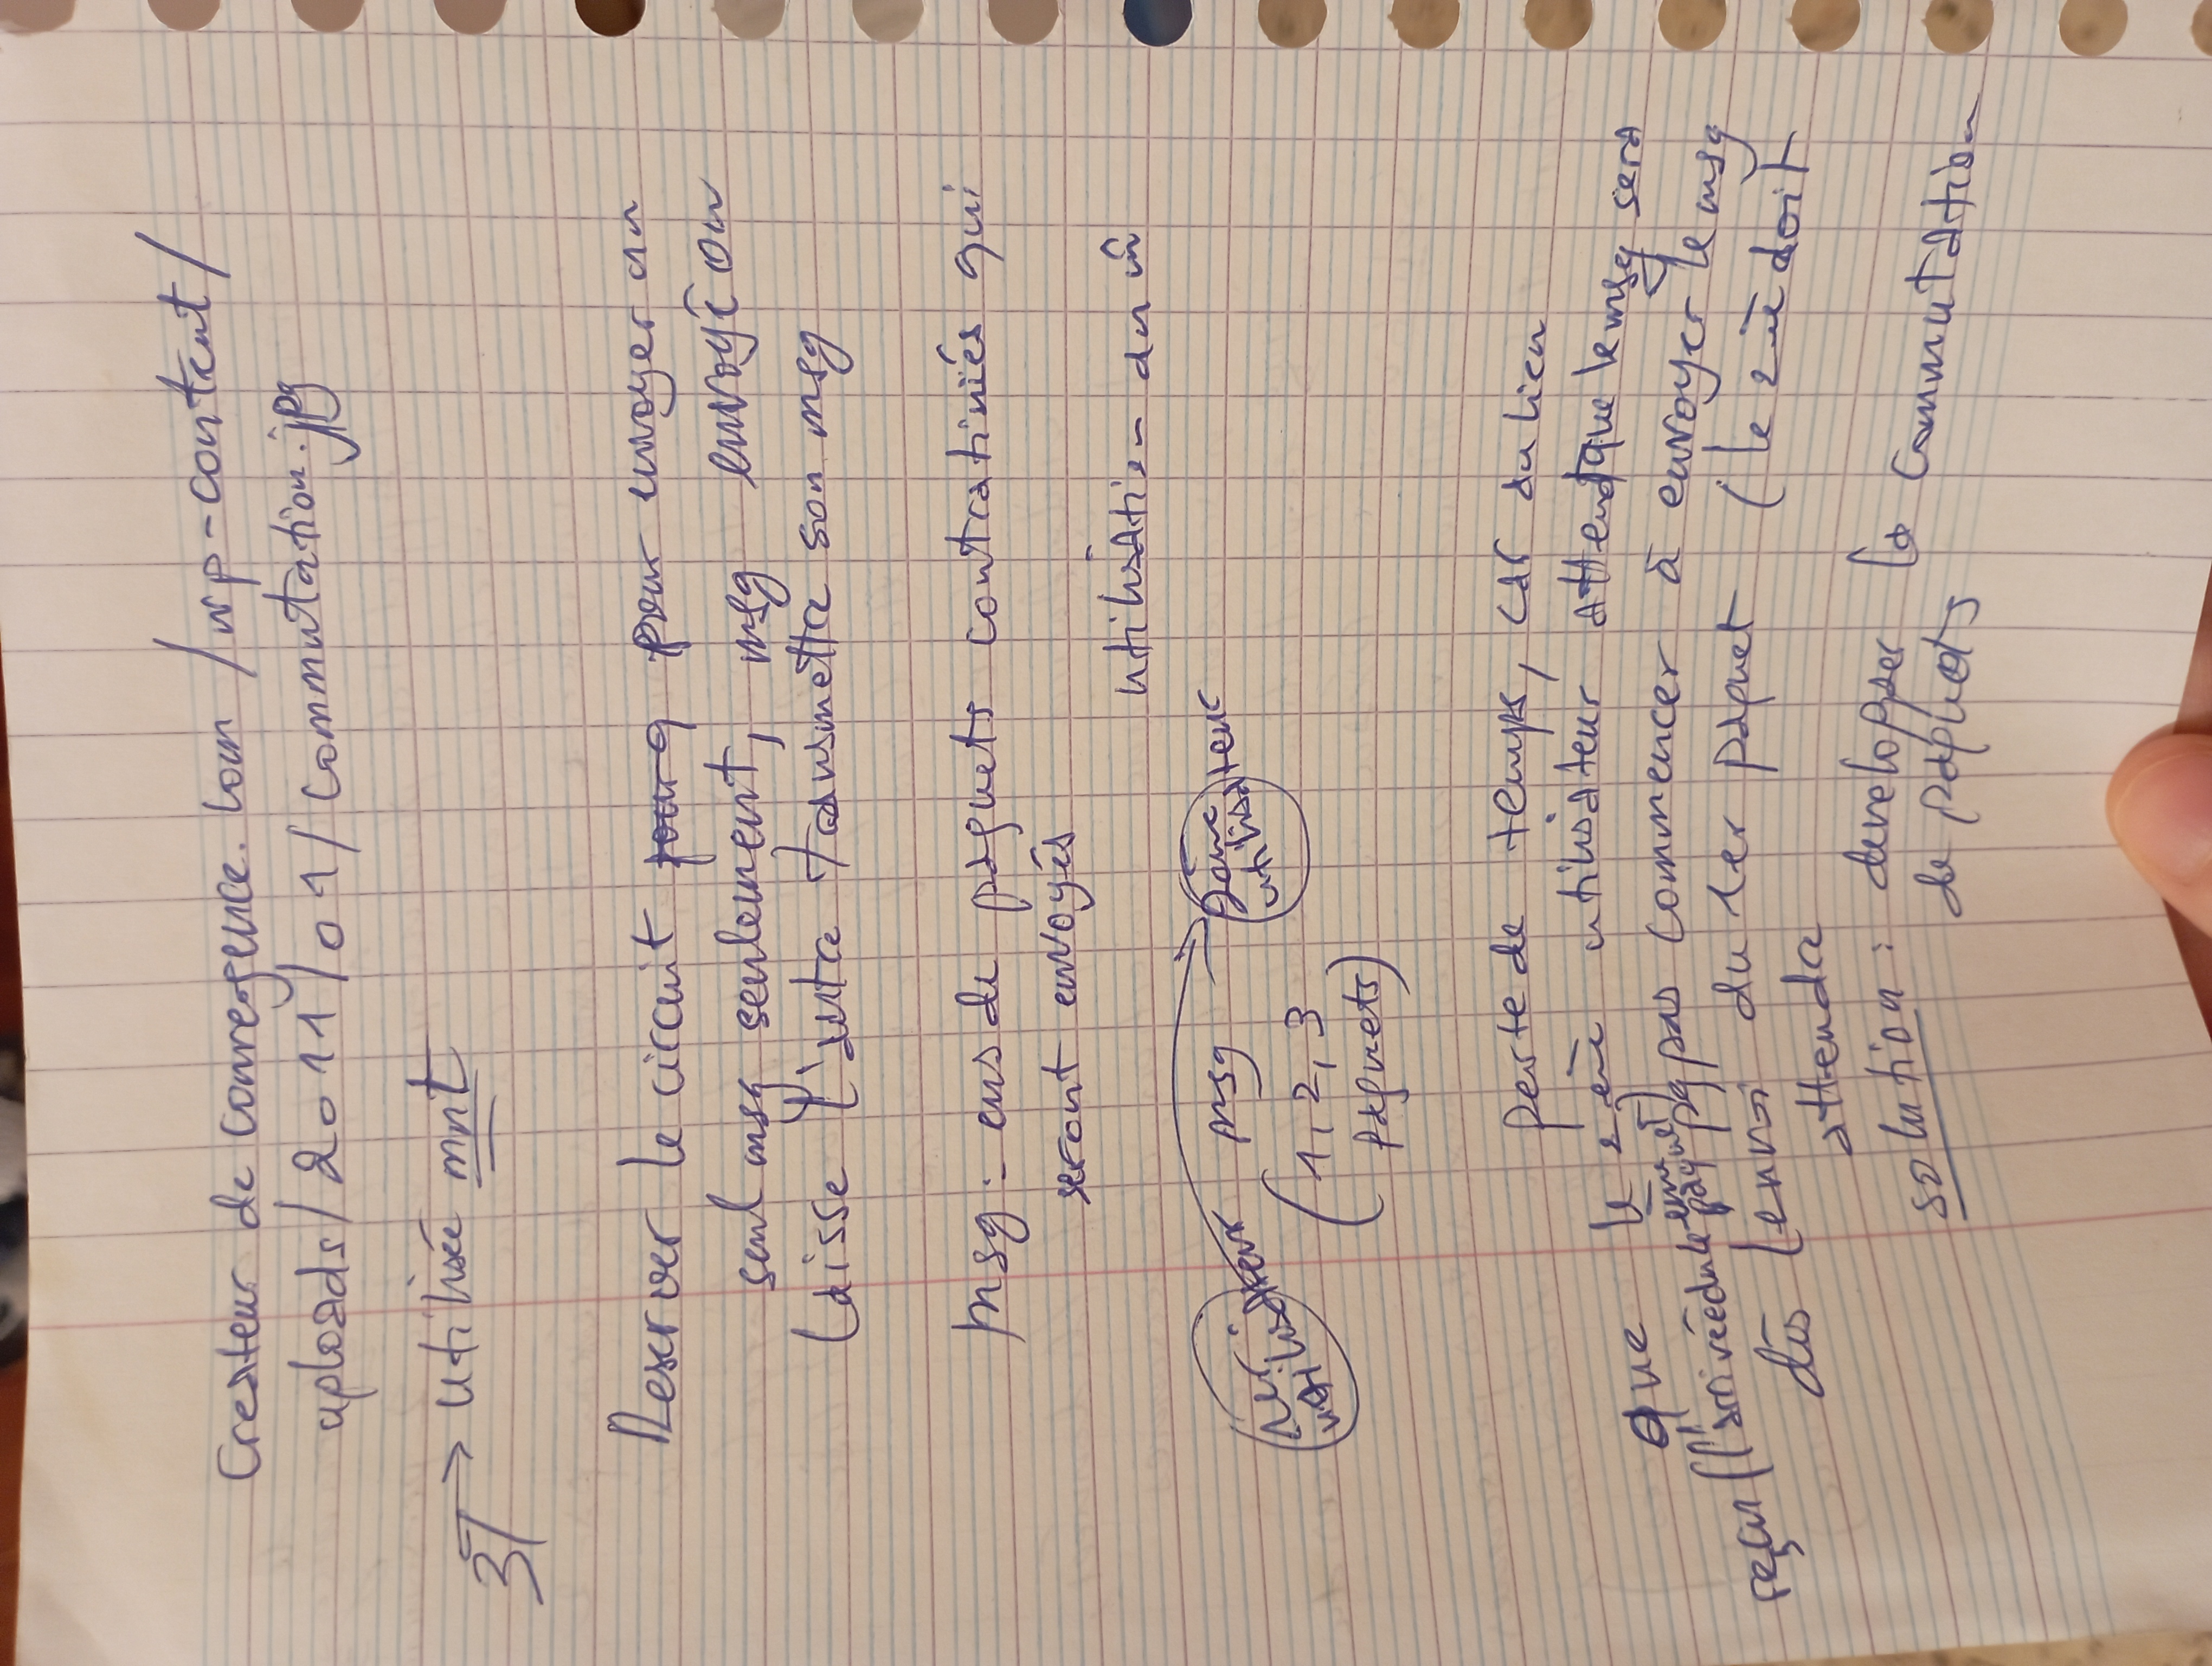 Createur de convergence.com/wp-content/
uploads/2011/01/Commutation.jpg
3/ → utilisée mnt
Reserver le circuit pour q pour envoyer un
seul msg seulement, msg envoyé on
laisse l'autre transmettre son msg
Msg: ens de paquets qui
seront envoyés
utilisation du m̂
1er utilisateur msg 2ème utilisateur
(1, 2, 3
paquets)
perte de temps, car au lieu
que le 2eme utilisateur attend que le msg sera
reçu (l'arrivée du paquet) pas commencer à envoyer le msg
dès l'envoi du 1er paquet (le 2eme doit
attendre
solution: developper la commutation
de paquets